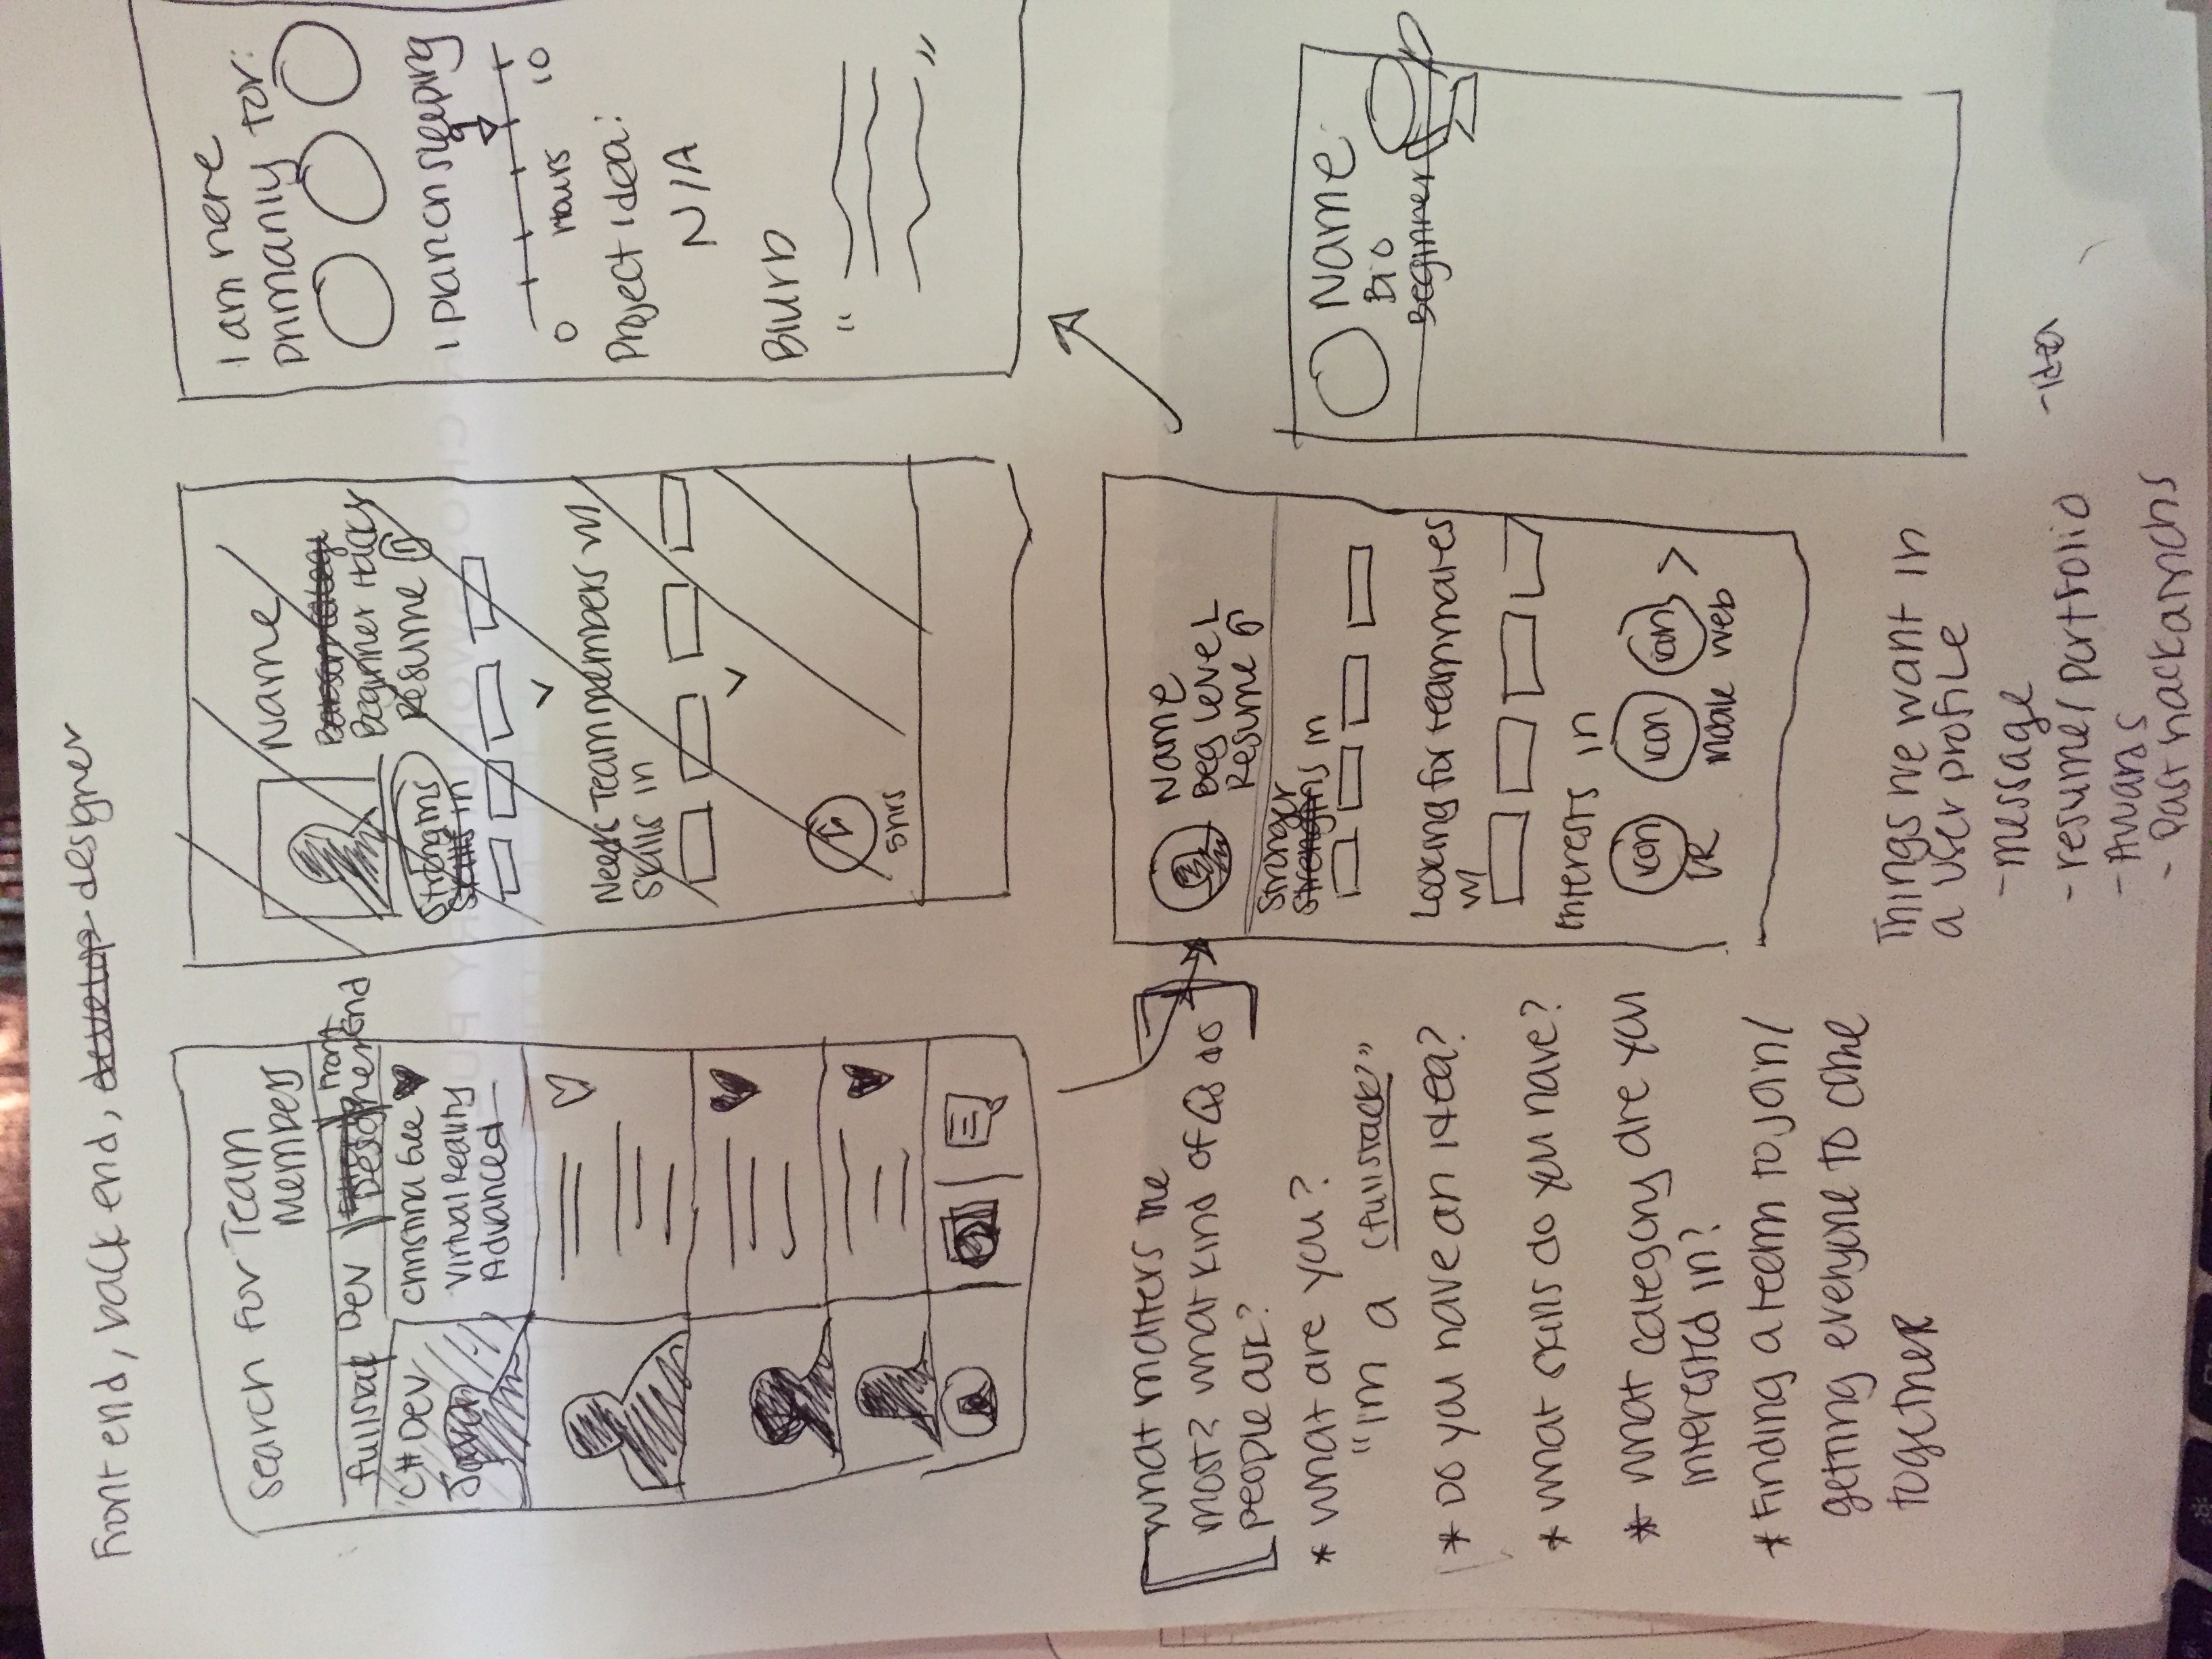 Front end, back end, develop designer
Search for Team
Members
fullstack Dev Designer Front End
C# Dev
Java
Christina
Virtual Reality
Advanced
Name
Beginner Hacker
Resume
Strengths
Skills in
Needs Team members w/
Skills in
5hrs
I am here
primarily for:
I plan on sleeping
0 Hours 10
Project idea:
N/A
Blurb
“
”
What matters the
most? What kind of Qs do
people ask?
* What are you?
"I'm a (fullstack?"
* Do you have an idea?
* What skills do you have?
* What category are you
interested in?
* Finding a team to join/
getting everyone to come
together
Name
Beg Level
Resume
Stronger
Strengths in
Looking for teammates
w/
Interests in
icon icon icon >
VR Mobile Web
Name
Bio
Beginner
Things we want in
a user profile
- message
- resume/portfolio
- Awards
- Past hackathons
- idea